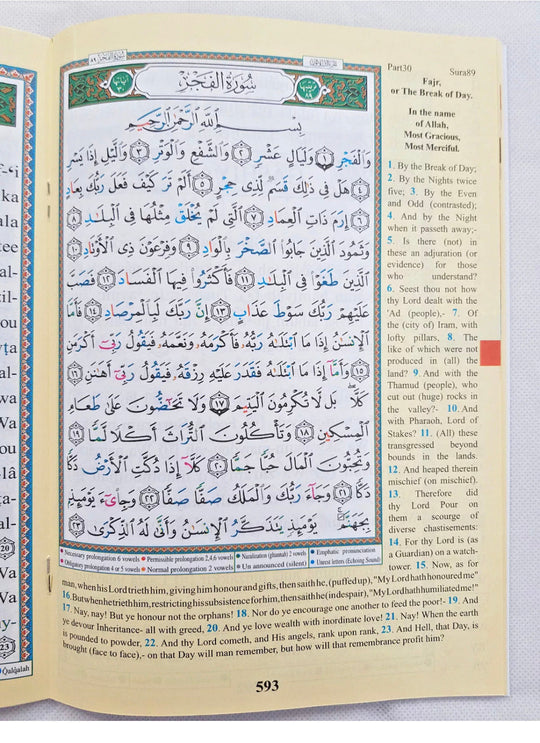 ka
ala
tee
al-
til-
ou
yṭa
al-
Va
ou
-lâ
ta-
al-
20
Va
Va
ay-
23
Qalqalah
سُورَةُ الفَجْرِ ٨٩
سُورَةُ الفَجْرِ
بِسْمِ ٱللَّهِ ٱلرَّحْمَٰنِ ٱلرَّحِيمِ
وَٱلْفَجْرِ ١ وَلَيَالٍ عَشْرٍ ٢ وَٱلشَّفْعِ وَٱلْوَتْرِ ٣ وَٱلَّيْلِ إِذَا يَسْرِ
٤ هَلْ فِى ذَٰلِكَ قَسَمٌ لِّذِى حِجْرٍ ٥ أَلَمْ تَرَ كَيْفَ فَعَلَ رَبُّكَ بِعَادٍ
٦ إِرَمَ ذَاتِ ٱلْعِمَادِ ٧ ٱلَّتِى لَمْ يُخْلَقْ مِثْلُهَا فِى ٱلْبِلَٰدِ ٨
وَثَمُودَ ٱلَّذِينَ جَابُوا۟ ٱلصَّخْرَ بِٱلْوَادِ ٩ وَفِرْعَوْنَ ذِى ٱلْأَوْتَادِ ١٠
ٱلَّذِينَ طَغَوْا۟ فِى ٱلْبِلَٰدِ ١١ فَأَكْثَرُوا۟ فِيهَا ٱلْفَسَادَ ١٢ فَصَبَّ
عَلَيْهِمْ رَبُّكَ سَوْطَ عَذَابٍ ١٣ إِنَّ رَبَّكَ لَبِٱلْمِرْصَادِ ١٤ فَأَمَّا
ٱلْإِنسَٰنُ إِذَا مَا ٱبْتَلَىٰهُ رَبُّهُۥ فَأَكْرَمَهُۥ وَنَعَّمَهُۥ فَيَقُولُ رَبِّىٓ أَكْرَمَنِ
١٥ وَأَمَّآ إِذَا مَا ٱبْتَلَىٰهُ فَقَدَرَ عَلَيْهِ رِزْقَهُۥ فَيَقُولُ رَبِّىٓ أَهَٰنَنِ ١٦
كَلَّا ۖ بَل لَّا تُكْرِمُونَ ٱلْيَتِيمَ ١٧ وَلَا تَحَٰٓضُّونَ عَلَىٰ طَعَامِ
ٱلْمِسْكِينِ ١٨ وَتَأْكُلُونَ ٱلتُّرَاثَ أَكْلًا لَّمًّا ١٩
وَتُحِبُّونَ ٱلْمَالَ حُبًّا جَمًّا ٢٠ كَلَّآ إِذَا دُكَّتِ ٱلْأَرْضُ دَكًّا
دَكًّا ٢١ وَجَآءَ رَبُّكَ وَٱلْمَلَكُ صَفًّا صَفًّا ٢٢ وَجِا۟ىٓءَ يَوْمَئِذٍۭ
بِجَهَنَّمَ ۚ يَوْمَئِذٍ يَتَذَكَّرُ ٱلْإِنسَٰنُ وَأَنَّىٰ لَهُ ٱلذِّكْرَىٰ ٢٣
Necessary prolongation 6 vowels Permissible prolongation 2,4,6 vowels Nazalization (ghunnah) 2 vowels Emphatic pronunciation
Obligatory prolongation 4 or 5 vowels Normal prolongation 2 vowels Un announced (silent) Unrest letters (Echoing Sound)
Part30 Sura89
Fajr,
or The Break of Day.
In the name
of Allah,
Most Gracious,
Most Merciful.
1. By the Break of Day;
2. By the Nights twice
five; 3. By the Even
and Odd (contrasted);
4. And by the Night
when it passeth away;-
5. Is there (not) in
these an adjuration (or
evidence) for those
who understand?
6. Seest thou not how
thy Lord dealt with the
'Ad (people),- 7. Of
the (city of) Iram, with
lofty pillars, 8. The
like of which were not
produced in (all) the
land? 9. And with the
Thamud (people), who
cut out (huge) rocks in
the valley?- 10. And
with Pharaoh, Lord of
Stakes? 11. (All) these
transgressed beyond
bounds in the lands.
12. And heaped therein
mischief (on mischief).
13. Therefore did
thy Lord Pour on
them a scourge of
diverse chastisements:
14. For thy Lord is (as
a Guardian) on a watch-
tower. 15. Now, as for
man, when his Lord trieth him, giving him honour and gifts, then saith he, (puffed up), "My Lord hath honoured me"
16. But when he trieth him, restricting his subsistence for him, then saith he (in despair), "My Lord hath humiliated me!"
17. Nay, nay! But ye honour not the orphans! 18. Nor do ye encourage one another to feed the poor!- 19. And
ye devour Inheritance- all with greed, 20. And ye love wealth with inordinate love! 21. Nay! When the earth
is pounded to powder, 22. And thy Lord cometh, and His angels, rank upon rank, 23. And Hell, that Day, is
brought (face to face),- on that Day will man remember, but how will that remembrance profit him?
593